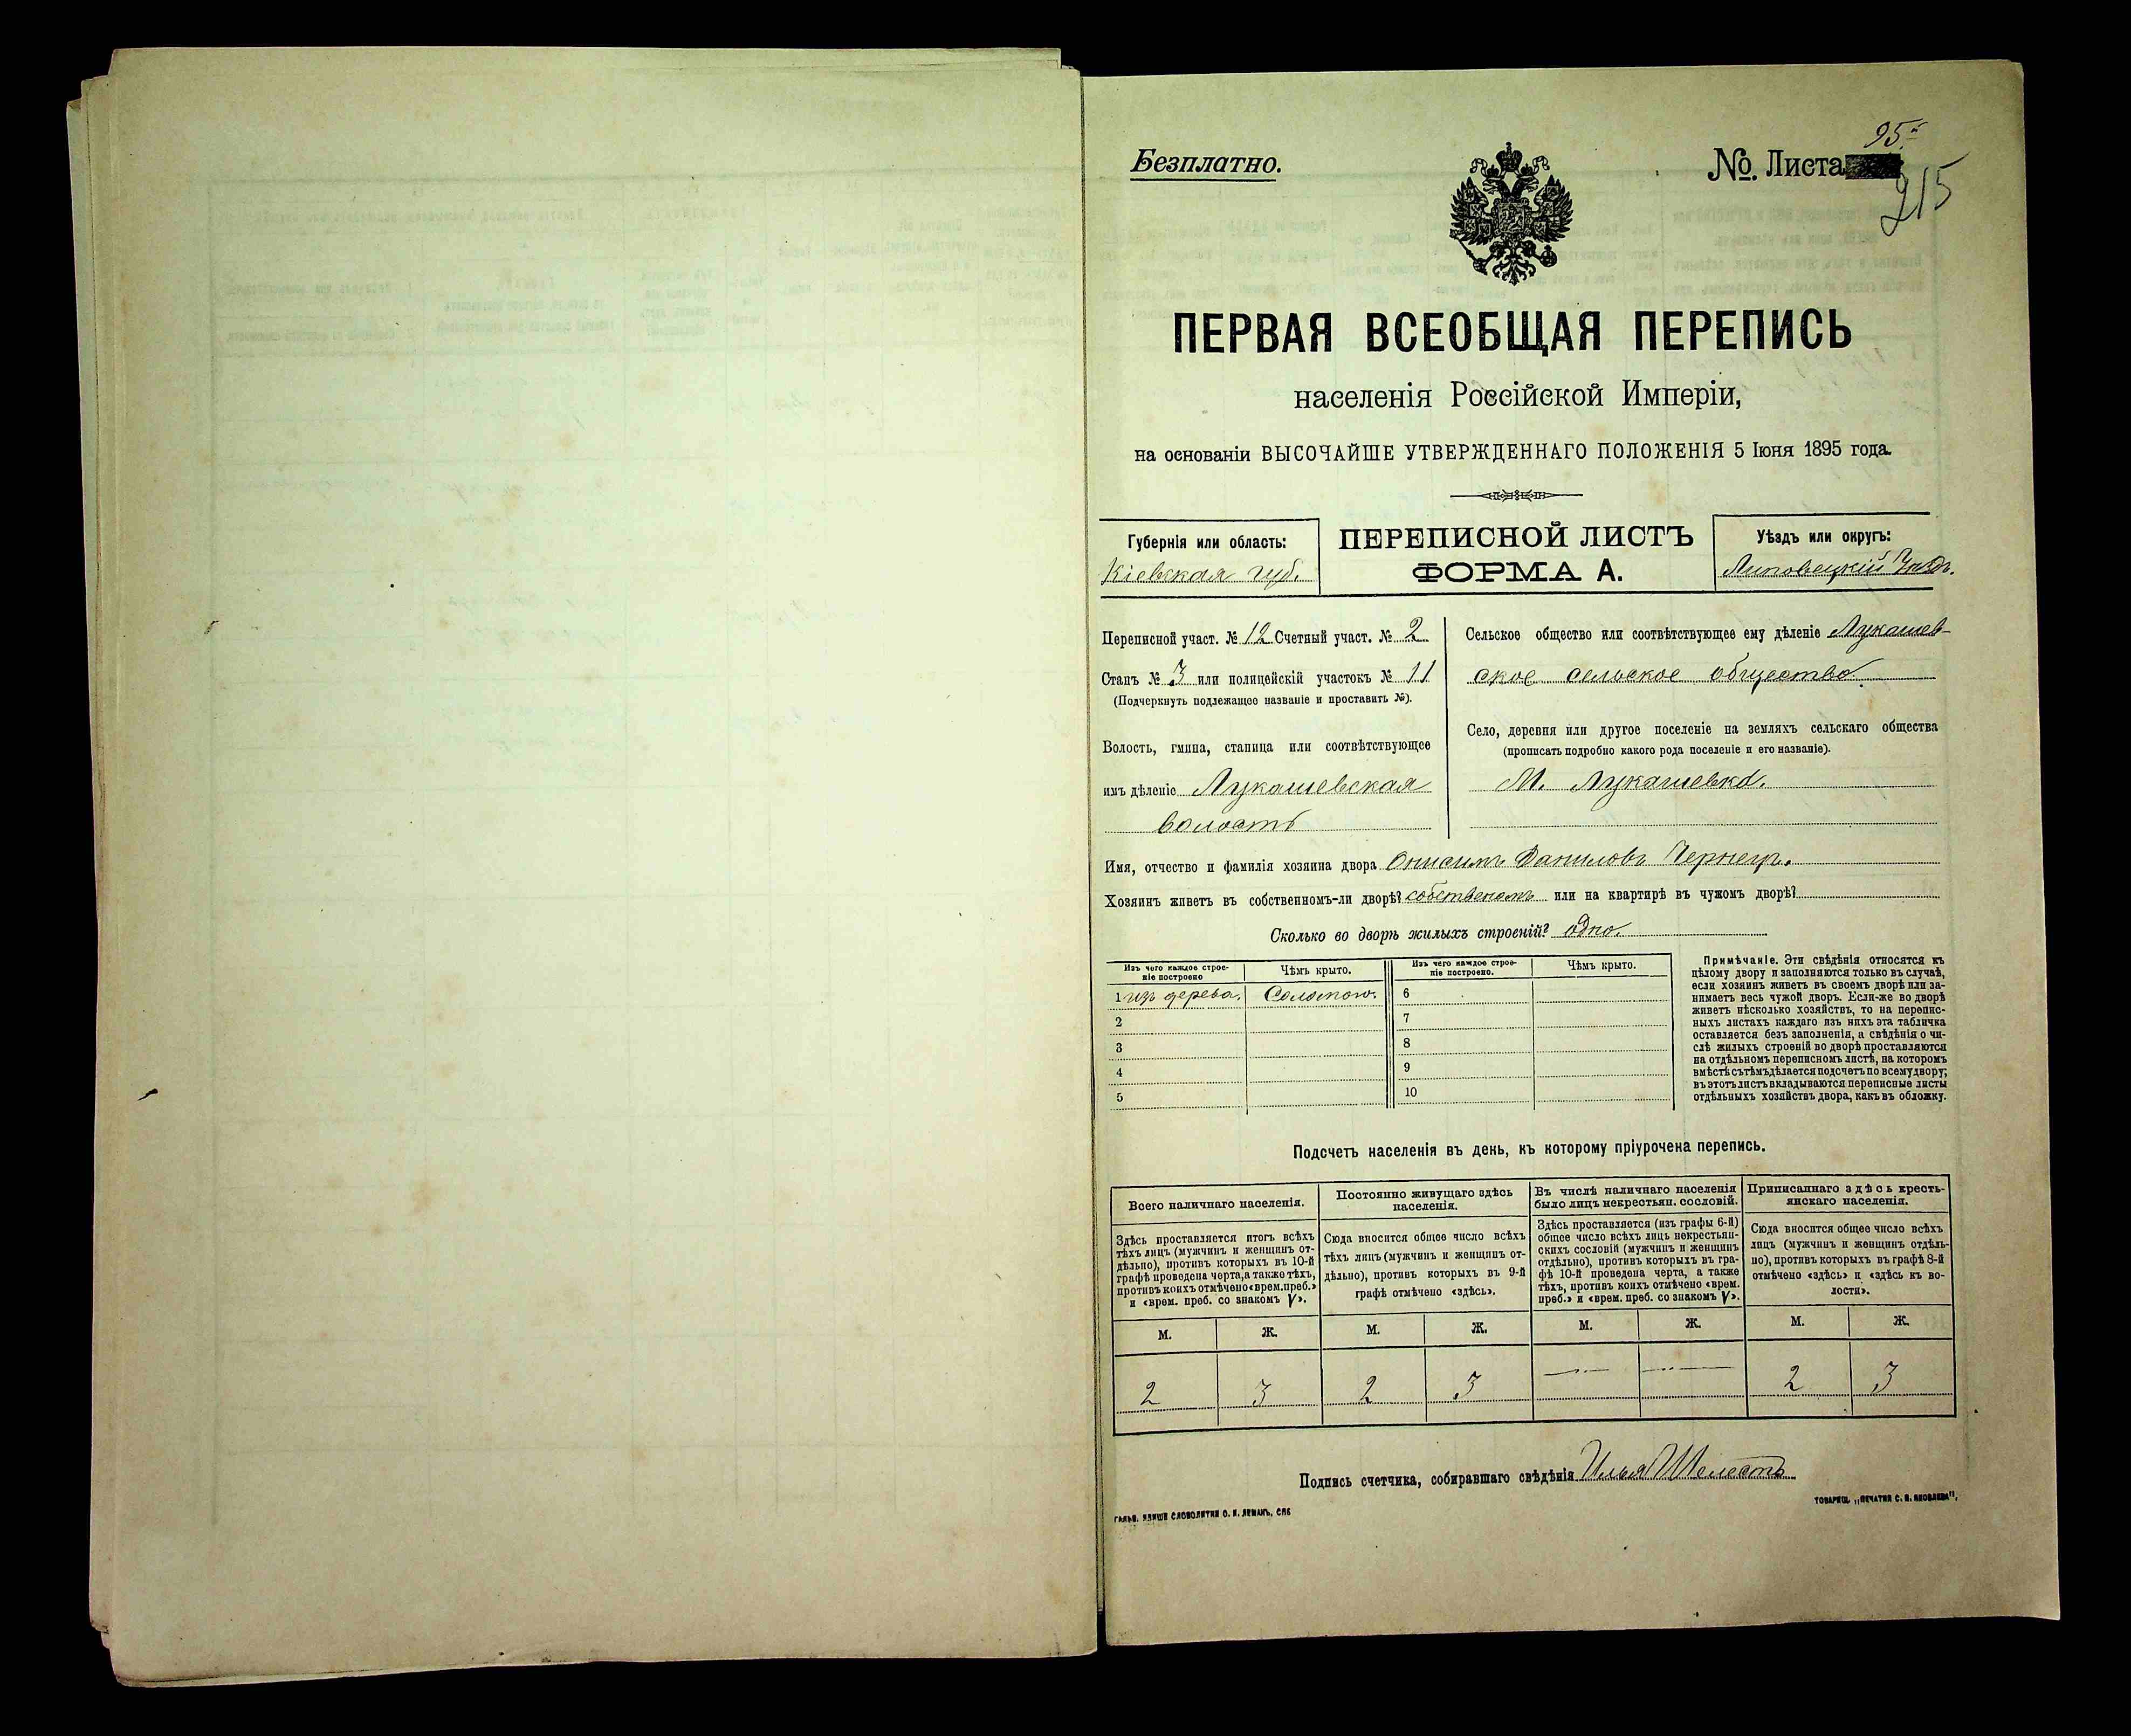 Безплатно.
№. Листа
95.
215
ПЕРВАЯ ВСЕОБЩАЯ ПЕРЕПИСЬ
населенія Россійской Имперіи,
на основаніи ВЫСОЧАЙШЕ УТВЕРЖДЕННАГО ПОЛОЖЕНІЯ 5 Іюня 1895 года.
Губернія или область:
Кіевская губ.
ПЕРЕПИСНОЙ ЛИСТЪ
ФОРМА А.
Уѣздъ или округъ:
Липовецкій
Переписной участ. № 12 Счетный участ. № 2
Станъ № 3 или полицейскій участокъ № 11
(Подчеркнуть подлежащее названіе и проставить №).
Волость, гмина, станица или соотвѣтствующее
имъ дѣленіе Лукашевская
волость
Сельское общество или соотвѣтствующее ему дѣленіе Лукашев-
ское сельское общество.
Село, деревня или другое поселеніе на земляхъ сельскаго общества
(прописать подробно какого рода поселеніе и его названіе).
М. Лукашевка.
Имя, отчество и фамилія хозяина двора Онисимъ Даниловъ Чернецъ.
Хозяинъ живетъ въ собственномъ-ли дворѣ? собственомъ или на квартирѣ въ чужомъ дворѣ?
Сколько во дворѣ жилыхъ строеній? одно.
Изъ чего каждое строе-
ніе построено
Чѣмъ крыто.
Изъ чего каждое строе-
ніе построено.
Чѣмъ крыто.
1 изъ дерева. Соломою. 6
2 7
3 8
4 9
5 10
Примѣчаніе. Эти свѣдѣнія относятся къ
цѣлому двору и заполняются только въ случаѣ,
если хозяинъ живетъ въ своемъ дворѣ или за-
нимаетъ весь чужой дворъ. Если-же во дворѣ
живетъ нѣсколько хозяйствъ, то на перепис-
ныхъ листахъ каждаго изъ нихъ эта табличка
оставляется безъ заполненія, а свѣдѣнія о чи-
слѣ жилыхъ строеній во дворѣ проставляются
на отдѣльномъ переписномъ листѣ, на которомъ
вмѣстѣ съ тѣмъ дѣлается подсчетъ по всему двору;
въ этотъ листъ вкладываются переписные листы
отдѣльныхъ хозяйствъ двора, какъ въ обложку.
Подсчетъ населенія въ день, къ которому пріурочена перепись.
Всего наличнаго населенія.
Здѣсь проставляется итогъ всѣхъ
тѣхъ лицъ (мужчинъ и женщинъ от-
дѣльно), противъ которыхъ въ 10-й
графѣ проведена черта, а также тѣхъ,
противъ коихъ отмѣчено «врем. преб.»
и «врем. преб. со знакомъ V».
Постоянно живущаго здѣсь
населенія.
Сюда вносится общее число всѣхъ
тѣхъ лицъ (мужчинъ и женщинъ от-
дѣльно), противъ которыхъ въ 9-й
графѣ отмѣчено «здѣсь».
Въ числѣ наличнаго населенія
было лицъ некрестьян. сословій.
Здѣсь проставляется (изъ графы 6-й)
общее число всѣхъ лицъ некрестьян-
скихъ сословій (мужчинъ и женщинъ
отдѣльно), противъ которыхъ въ гра-
фѣ 10-й проведена черта, а также
тѣхъ, противъ коихъ отмѣчено «врем.
преб.» и «врем. преб. со знакомъ V».
Приписаннаго здѣсь кресть-
янскаго населенія.
Сюда вносится общее число всѣхъ
лицъ (мужчинъ и женщинъ отдѣль-
но), противъ которыхъ въ графѣ 8-й
отмѣчено «здѣсь» и «здѣсь къ во-
лости».
М. Ж. М. Ж. М. Ж. М. Ж.
2 3 2 3 — — 2 3
Подпись счетчика, собиравшаго свѣдѣнія Илья Шелестъ
СЛОВОЛИТНИ О. И. ЛЕМАНЪ, СПБ
ТОВАРИЩ. „ПЕЧАТНЯ С. П. ЯКОВЛЕВА“,